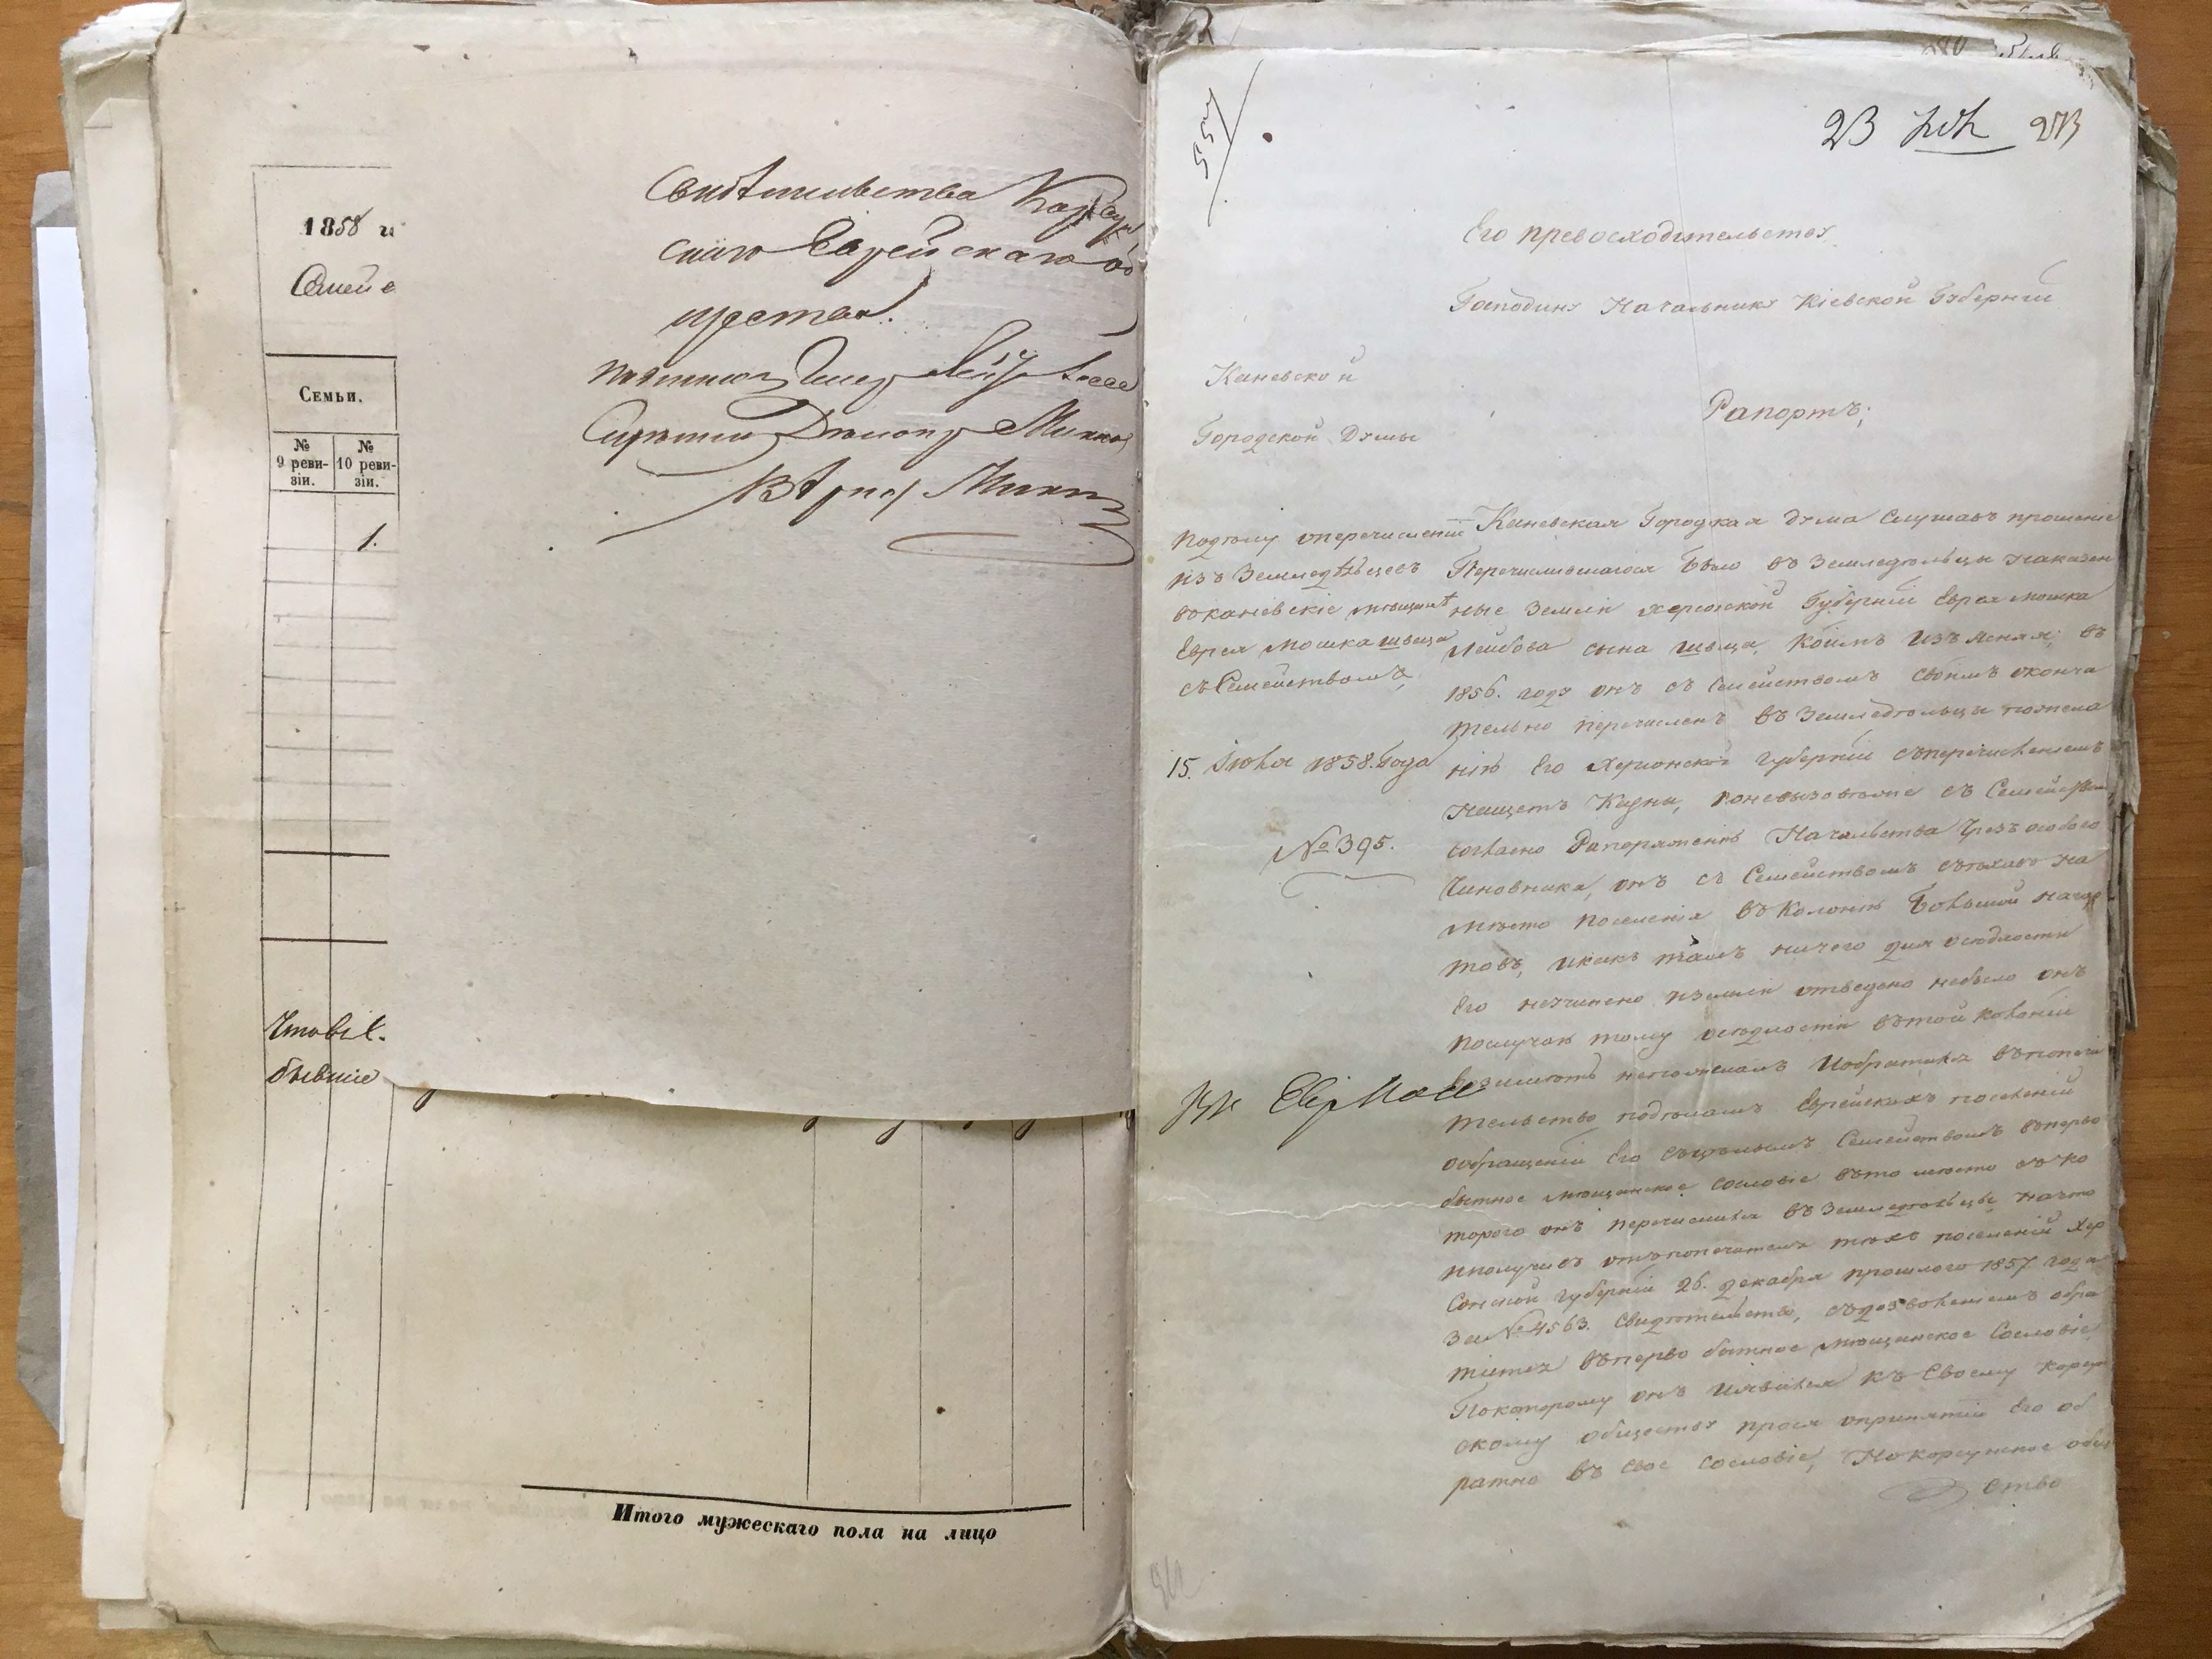 1858 и
Семей с
Семьи.
№ 9 реви-зіи.
№ 10 реви-зіи.
1.
бывшіе
Итого мужескаго пола на лицо
Свидѣтельства Корсун
скаго Еврейскаго об
щества.
23 273
557
Его превосходительству
Господину Начальнику Кіевской Губерніи
Каневской
Городской Думы
Рапортъ;
подѣлу оперечисленіи
изъ Земледѣльцевъ
воканевскіе мѣщане
Еврея мошка швеца
съ Семействомъ,
15. Іюля 1858. Года
№ 395.
Каневская Городская Дума Слушавъ прошеніе
Перечислившагося Было въ Земледѣльцы наказен
ные Земли херсонской Губерніи Еврея мошка
Лейбова сына швеца, Коимъ изъясняя, въ
1856. году онъ съ Семействомъ своимъ оконча
тельно перечисленъ въ Земледѣльцы пожела
нію Его Херсонской губерніи съперечисленіемъ
нащетъ Казны, съ Семейством
согласно Распоряженію Начальства чрезъ особого
Чиновника, онъ съ Семействомъ съѣхавъ на
мѣсто поселенія въ Колонію Большой нагар
товъ, икакъ тамъ ничего для осѣдлости
Его неучинено иземли отведено небыло онъ
послучаю тому осѣдлости вътой колоніи
возимѣть непожелалъ Иобратился въпопечи
тельство подѣламъ Еврейскихъ поселеній
ообращеніи Его съцѣлымъ Семействомъ въперво
бытное мѣщанское сословіе въто мѣсто съ ко
торого онъ перечислился въ Земледѣльцы начто
иполучивъ отъпопечителя тѣхъ поселеній Хер
сонской губерніи 26. декабря прошлого 1857 года
За № 4563. Свидѣтельство, съдозволеніемъ обра
титься въперво бытное мѣщанское Сословіе,
Покоторому онъ Иявился къ Своему Корсун
скому обществу прося опринятіи Его об
ратно въ свое сословіе, Но Корсунское общ
ство